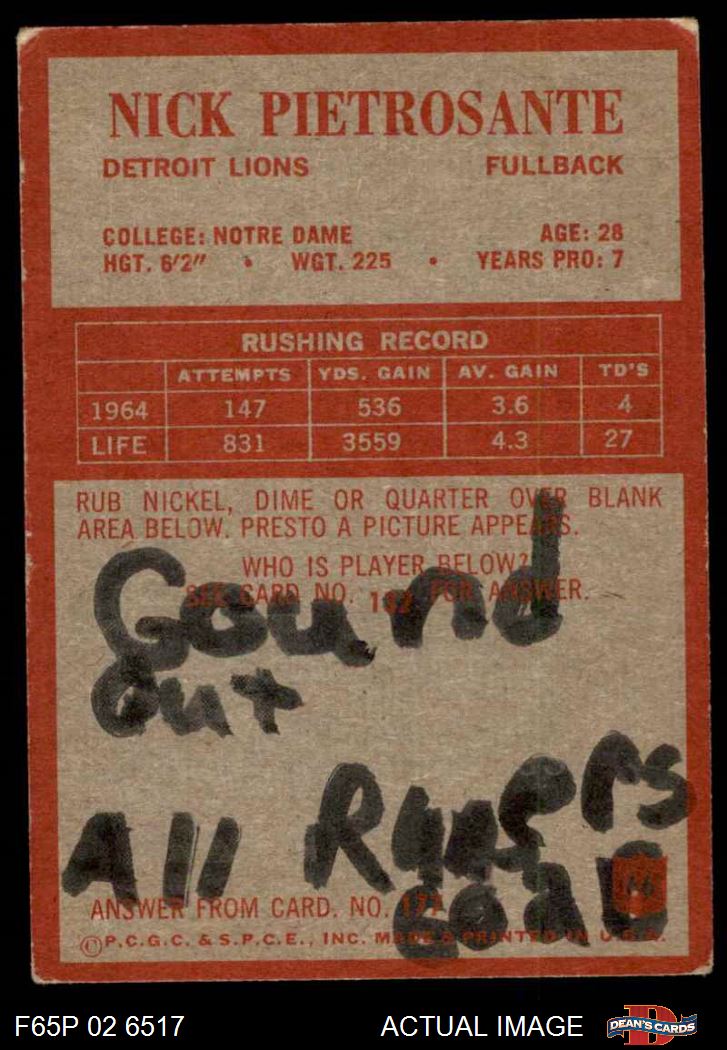 NICK PIETROSANTE
DETROIT LIONS FULLBACK
COLLEGE: NOTRE DAME AGE: 28
HGT. 6'2" • WGT. 225 • YEARS PRO: 7
RUSHING RECORD
ATTEMPTS YDS. GAIN AV. GAIN TD'S
1964 147 536 3.6 4
LIFE 831 3559 4.3 27
RUB NICKEL, DIME OR QUARTER OVER BLANK
AREA BELOW. PRESTO A PICTURE APPEARS.
WHO IS PLAYER BELOW?
SEE CARD NO. FOR ANSWER.
Gound
out
All
ANSWER FROM CARD. NO. 177
©P.C.G.C. & S.P.C.E., INC. MADE & PRINTED IN U.S.A.
F65P 02 6517 ACTUAL IMAGE DEAN'S CARDS